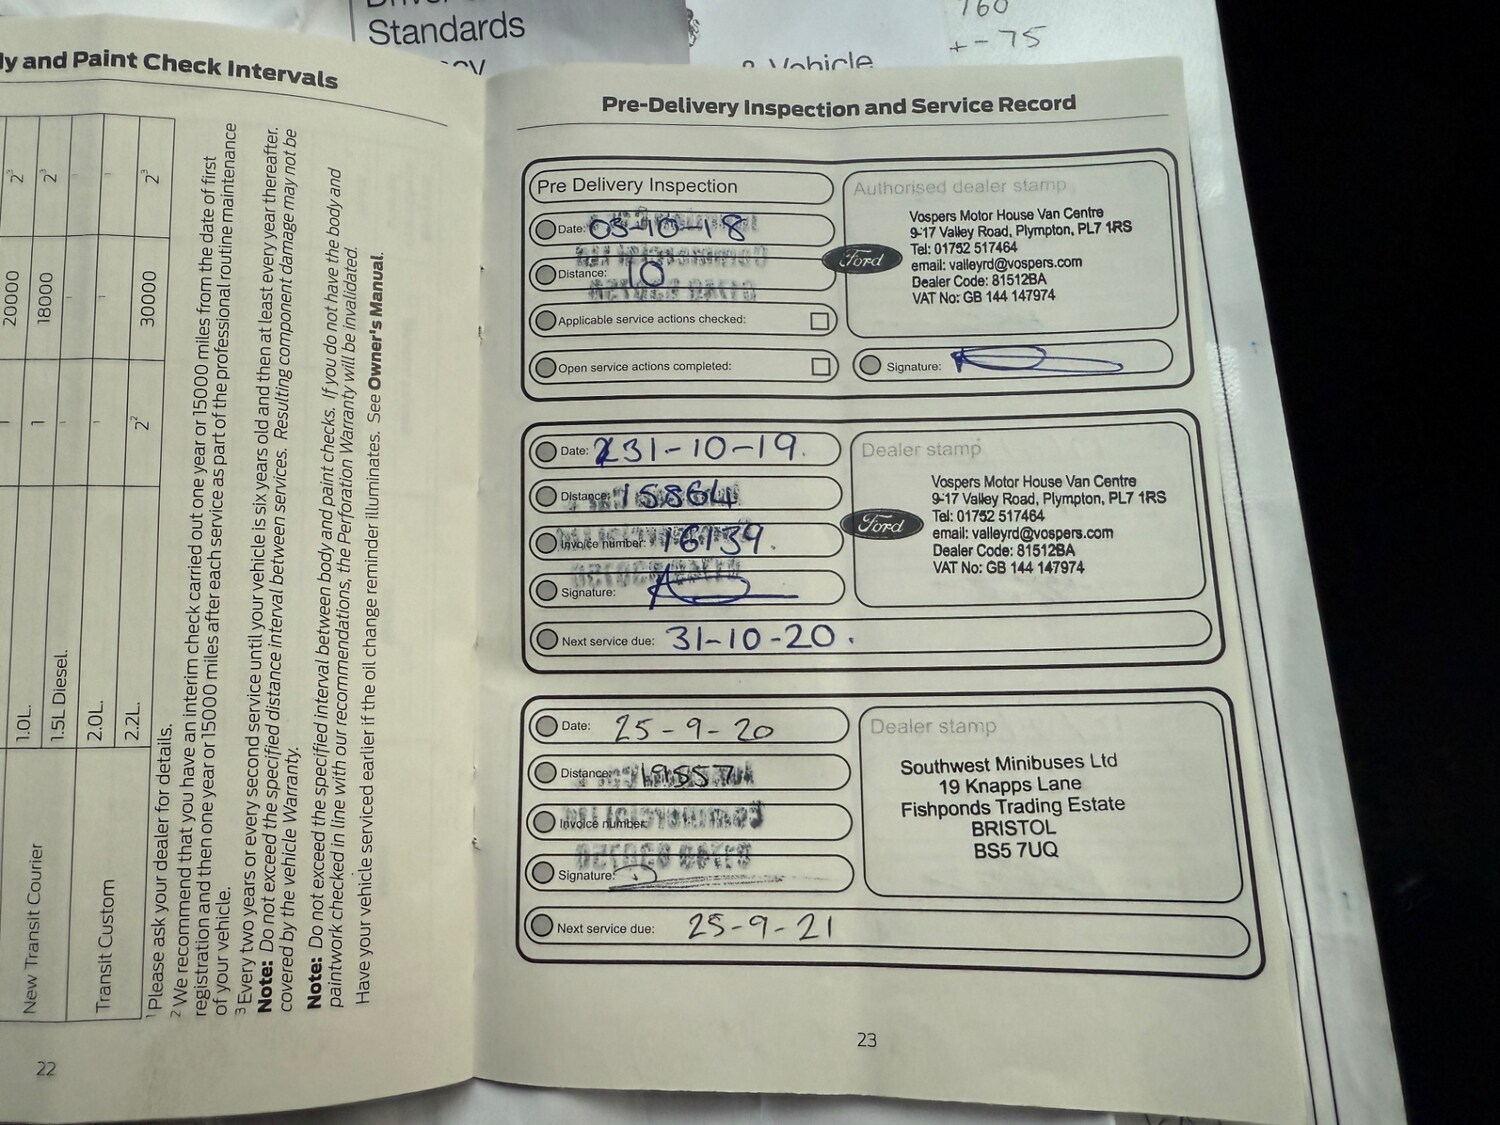 Standards
160
+-75
Vehicle
ly and Paint Check Intervals
20000
2³
1.0L.
1
18000
2³
New Transit Courier
1.5L Diesel.
-
-
-
2.0L.
-
-
-
Transit Custom
2.2L.
2²
30000
2³
¹ Please ask your dealer for details.
² We recommend that you have an interim check carried out one year or 15000 miles from the date of first
registration and then one year or 15000 miles after each service as part of the professional routine maintenance
of your vehicle.
³ Every two years or every second service until your vehicle is six years old and then at least every year thereafter.
Note: Do not exceed the specified distance interval between services. Resulting component damage may not be
covered by the vehicle Warranty.
Note: Do not exceed the specified interval between body and paint checks. If you do not have the body and
paintwork checked in line with our recommendations, the Perforation Warranty will be invalidated.
Have your vehicle serviced earlier if the oil change reminder illuminates. See Owner's Manual.
22
Pre-Delivery Inspection and Service Record
Pre Delivery Inspection
Date: 03-10-18
Distance: 10
Applicable service actions checked:
Open service actions completed:
Authorised dealer stamp
Ford
Vospers Motor House Van Centre
9-17 Valley Road, Plympton, PL7 1RS
Tel: 01752 517464
email: valleyrd@vospers.com
Dealer Code: 81512BA
VAT No: GB 144 147974
Signature:
Date: 31-10-19.
Distance: 15864
Invoice number: 16139.
Signature:
Next service due: 31-10-20.
Dealer stamp
Ford
Vospers Motor House Van Centre
9-17 Valley Road, Plympton, PL7 1RS
Tel: 01752 517464
email: valleyrd@vospers.com
Dealer Code: 81512BA
VAT No: GB 144 147974
Date: 25-9-20
Distance: 19557
Invoice number:
Signature:
Next service due: 25-9-21
Dealer stamp
Southwest Minibuses Ltd
19 Knapps Lane
Fishponds Trading Estate
BRISTOL
BS5 7UQ
23